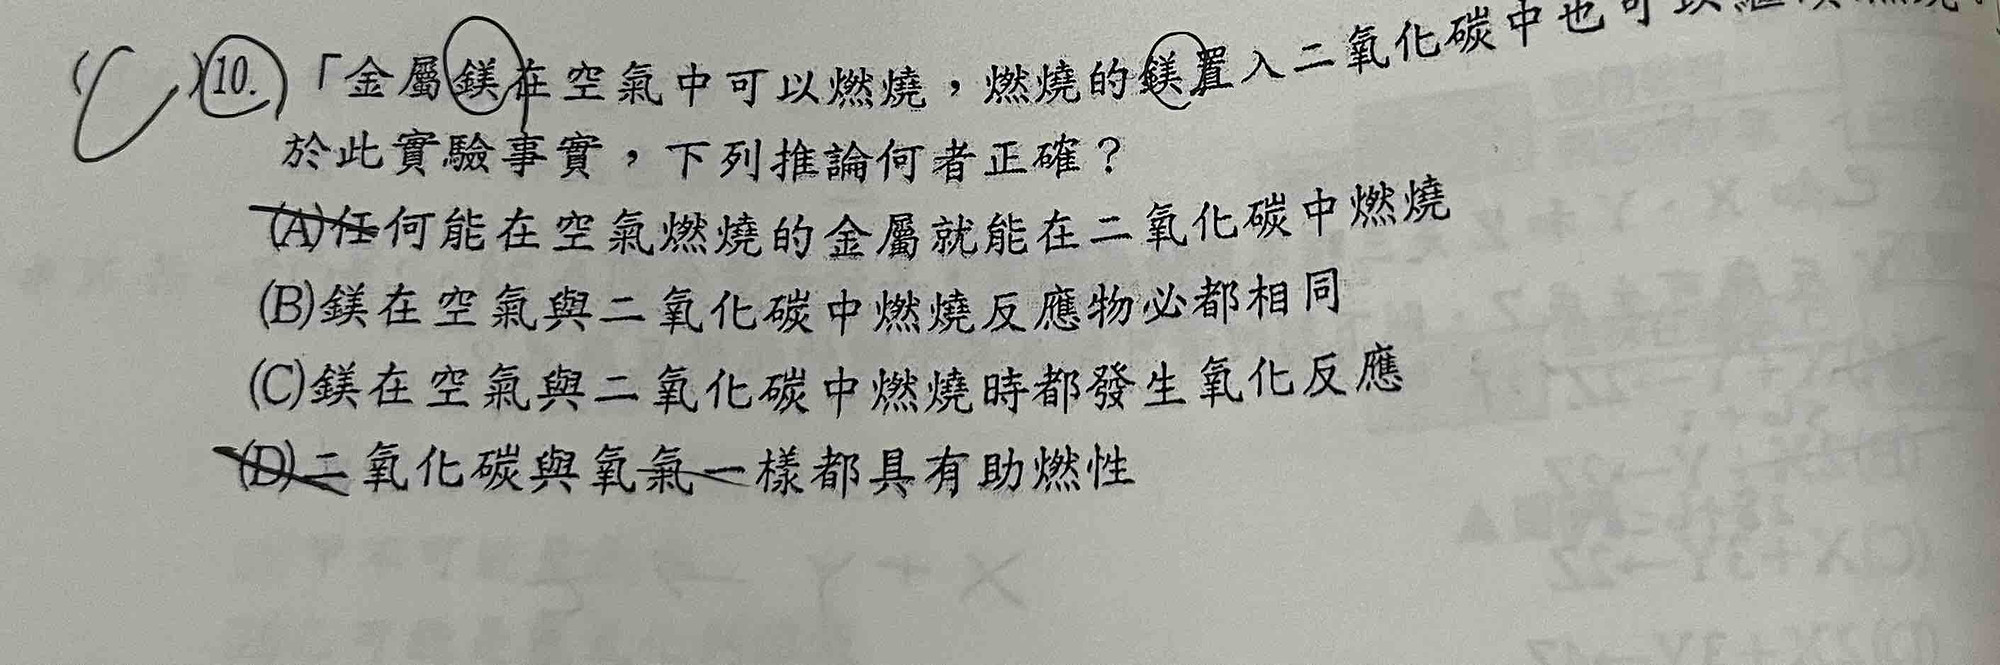 (C)10.「金屬鎂在空氣中可以燃燒，燃燒的鎂置入二氧化碳中也可以繼續燃燒
於此實驗事實，下列推論何者正確？
(A)任何能在空氣燃燒的金屬就能在二氧化碳中燃燒
(B)鎂在空氣與二氧化碳中燃燒反應物必都相同
(C)鎂在空氣與二氧化碳中燃燒時都發生氧化反應
(D)二氧化碳與氧氣一樣都具有助燃性